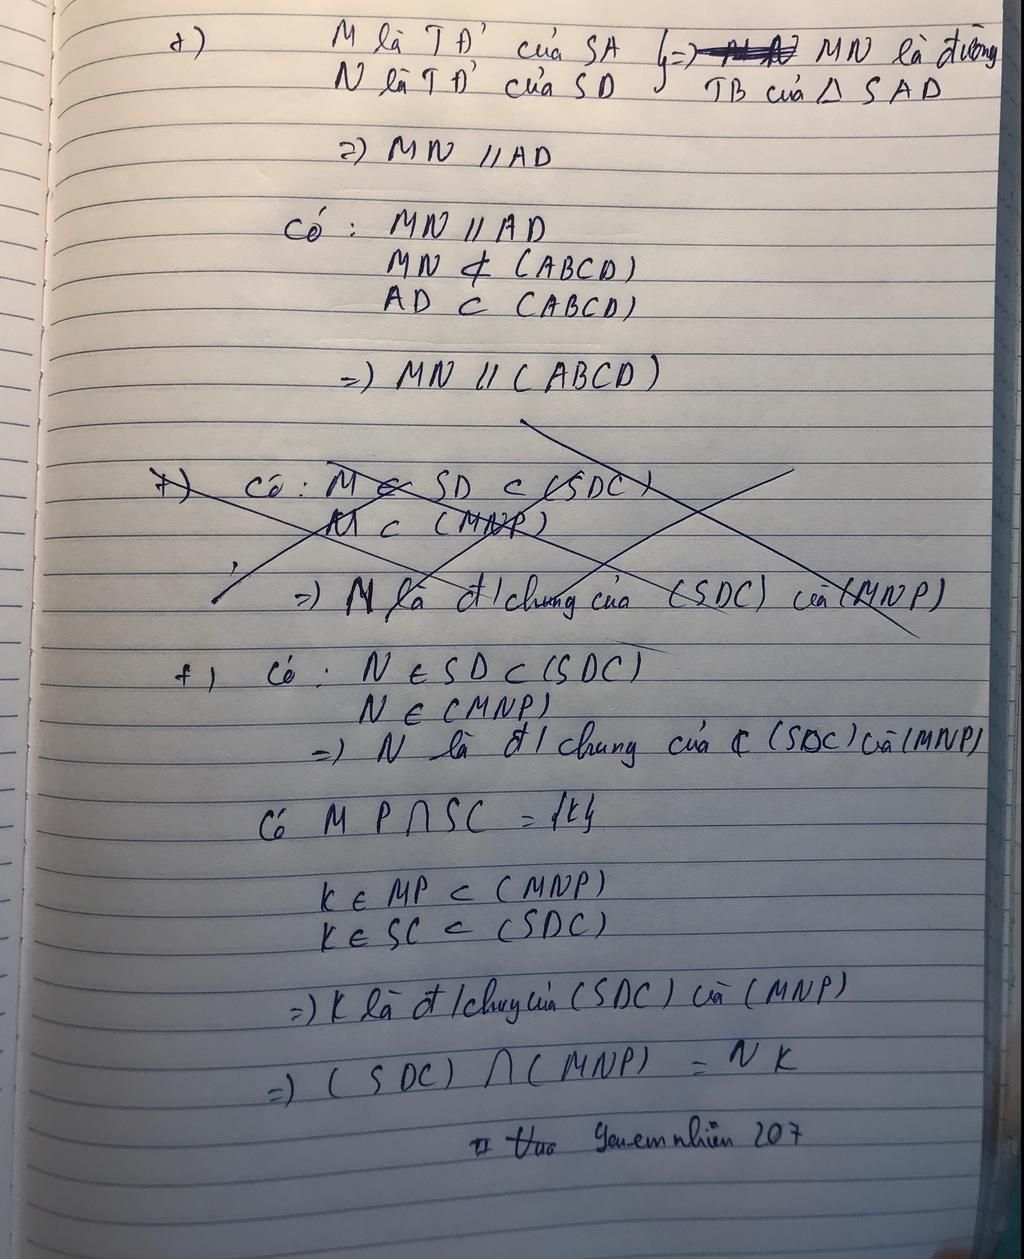 +) M là TĐ' của SA } => MN là đường
N là TĐ' của SD TB của Δ SAD
=) MN // AD
Có : MN // AD
MN ⊄ (ABCD)
AD ⊂ (ABCD)
=) MN // (ABCD)
+) Có : M ∈ SD ⊂ (SDC)
M ⊂ (MNP)
=) M là đ/chung của (SDC) và (MNP)
+) Có : N ∈ SD ⊂ (SDC)
N ∈ (MNP)
=) N là đ/chung của (SDC) và (MNP)
Có MP ∩ SC = {K}
K ∈ MP ⊂ (MNP)
K ∈ SC ⊂ (SDC)
=) K là đ/chung của (SDC) và (MNP)
=) (SDC) ∩ (MNP) = NK
Yeu em nhiên 207